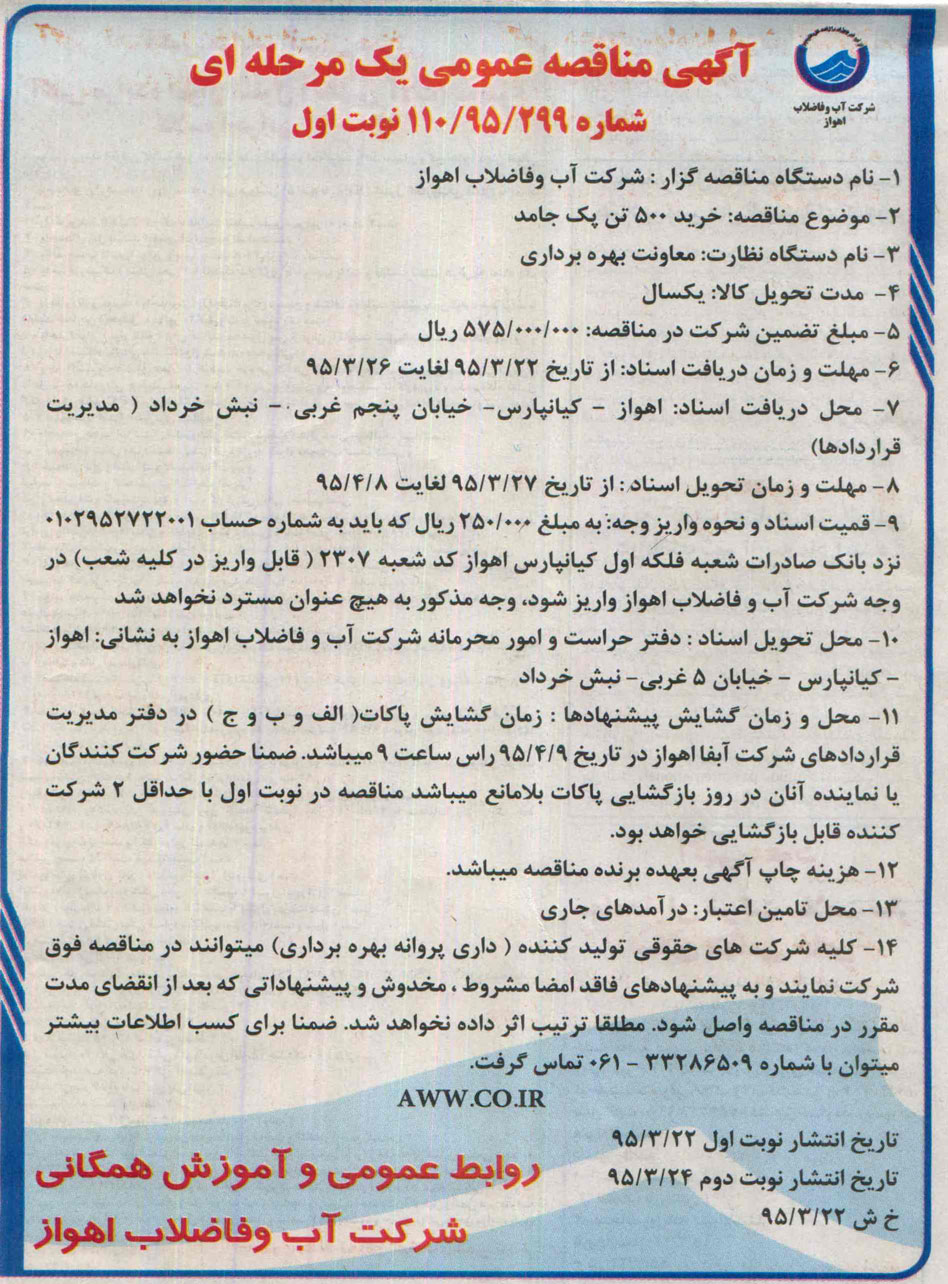 آگهی مناقصه عمومی یک مرحله ای
شماره ۱۱۰/۹۵/۲۹۹ نوبت اول
شرکت آب وفاضلاب
اهواز
۱- نام دستگاه مناقصه گزار : شرکت آب وفاضلاب اهواز
۲- موضوع مناقصه: خرید ۵۰۰ تن پک جامد
۳- نام دستگاه نظارت: معاونت بهره برداری
۴- مدت تحویل کالا: یکسال
۵- مبلغ تضمین شرکت در مناقصه: ۵۷۵/۰۰۰/۰۰۰ ریال
۶- مهلت و زمان دریافت اسناد: از تاریخ ۹۵/۳/۲۲ لغایت ۹۵/۳/۲۶
۷- محل دریافت اسناد: اهواز – کیانپارس- خیابان پنجم غربی – نبش خرداد ( مدیریت
قراردادها)
۸- مهلت و زمان تحویل اسناد : از تاریخ ۹۵/۳/۲۷ لغایت ۹۵/۴/۸
۹- قمیت اسناد و نحوه واریز وجه: به مبلغ ۲۵۰/۰۰۰ ریال که باید به شماره حساب ۰۱۰۲۹۵۲۷۲۲۰۰۱
نزد بانک صادرات شعبه فلکه اول کیانپارس اهواز کد شعبه ۲۳۰۷ ( قابل واریز در کلیه شعب) در
وجه شرکت آب و فاضلاب اهواز واریز شود، وجه مذکور به هیچ عنوان مسترد نخواهد شد
۱۰- محل تحویل اسناد : دفتر حراست و امور محرمانه شرکت آب و فاضلاب اهواز به نشانی: اهواز
– کیانپارس – خیابان ۵ غربی- نبش خرداد
۱۱- محل و زمان گشایش پیشنهادها : زمان گشایش پاکات( الف و ب و ج ) در دفتر مدیریت
قراردادهای شرکت آبفا اهواز در تاریخ ۹۵/۴/۹ راس ساعت ۹ میباشد. ضمنا حضور شرکت کنندگان
یا نماینده آنان در روز بازگشایی پاکات بلامانع میباشد مناقصه در نوبت اول با حداقل ۲ شرکت
کننده قابل بازگشایی خواهد بود.
۱۲- هزینه چاپ آگهی بعهده برنده مناقصه میباشد.
۱۳- محل تامین اعتبار: درآمدهای جاری
۱۴- کلیه شرکت های حقوقی تولید کننده ( داری پروانه بهره برداری) میتوانند در مناقصه فوق
شرکت نمایند و به پیشنهادهای فاقد امضا مشروط ، مخدوش و پیشنهاداتی که بعد از انقضای مدت
مقرر در مناقصه واصل شود. مطلقا ترتیب اثر داده نخواهد شد. ضمنا برای کسب اطلاعات بیشتر
میتوان با شماره ۳۳۲۸۶۵۰۹ – ۰۶۱ تماس گرفت.
AWW.CO.IR
تاریخ انتشار نوبت اول ۹۵/۳/۲۲
تاریخ انتشار نوبت دوم ۹۵/۳/۲۴
خ ش ۹۵/۳/۲۲
روابط عمومی و آموزش همگانی
شرکت آب وفاضلاب اهواز